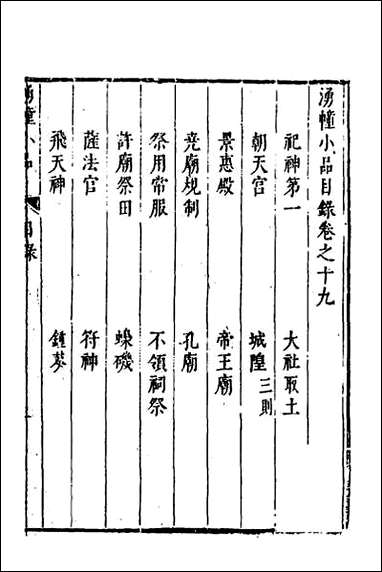 湧幢小品目錄卷之十九
祀神第一 大社取土
朝天宮 城隍三則
景惠殿 帝王廟
堯廟規制 孔廟
祭用常服 不領祠祭
許廟祭田 蟂磯
薩法官 符神
飛天神 鍾夢
湧幢小品 目錄